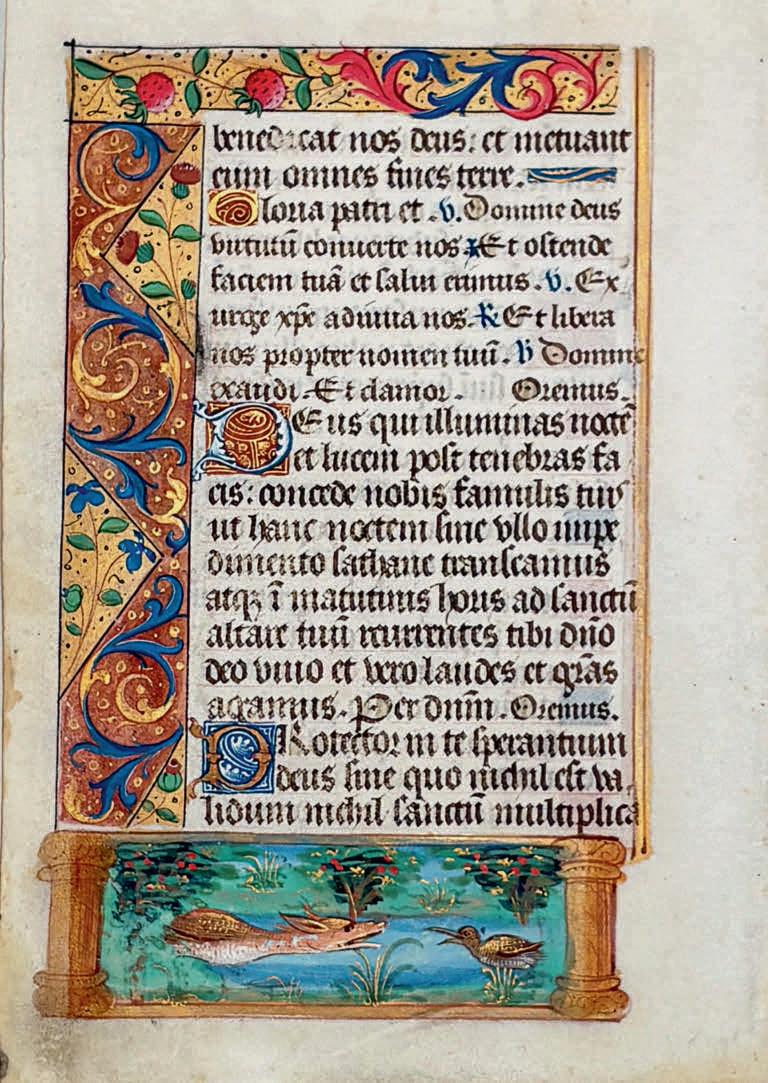 benedicat nos deus: et metuant
eum omnes fines terre.
Gloria patri et .v. Domine deus
virtutū conuerte nos. Et ostende
faciem tuā et salui erimus .v. Ex
urge xp̄e adiuua nos. R Et libera
nos propter nomen tuū. v Domine
exaudi. Et clamor. Oremus.
DEus qui illuminas noctē
et lucem post tenebras fa
cis: concede nobis famulis tuis
ut hanc noctem sine vllo impe
dimento sathane transeamus
atqꝫ ī matutinis horis ad sanctū
altare tuū recurrentes tibi dn̄o
deo viuo et vero laudes et gr̄as
agamus. Per dn̄m. Oremus.
PRotector in te sperantium
deus sine quo nichil est va
lidum nichil sanctū multiplica